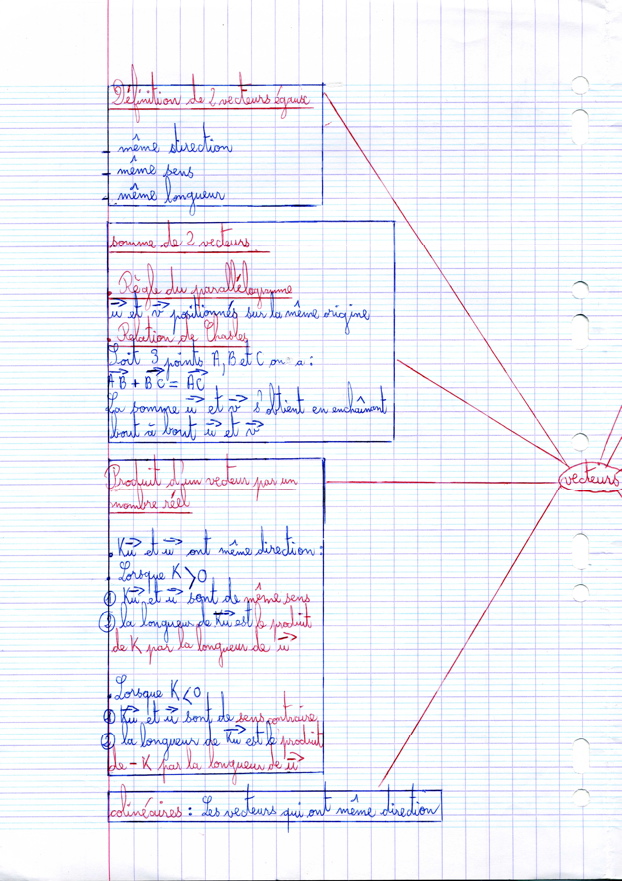 Définition de 2 vecteurs égaux
- même direction
- même sens
- même longueur
somme de 2 vecteurs
. Règle du parallélogramme
u et v positionnés sur la même origine
. Relation de Chasles
Soit 3 points A, B et C on a :
AB + BC = AC
La somme u et v s'obtient en enchaînant
bout à bout u et v
Produit d'un vecteur par un
nombre réel
. Ku et u ont même direction :
. Lorsque K > 0
① Ku et u sont de même sens
② la longueur de Ku est le produit
de K par la longueur de u
. Lorsque K < 0
① Ku et u sont de sens contraire
② la longueur de Ku est le produit
de - K par la longueur de u
colinéaires : Les vecteurs qui ont même direction
vecteurs